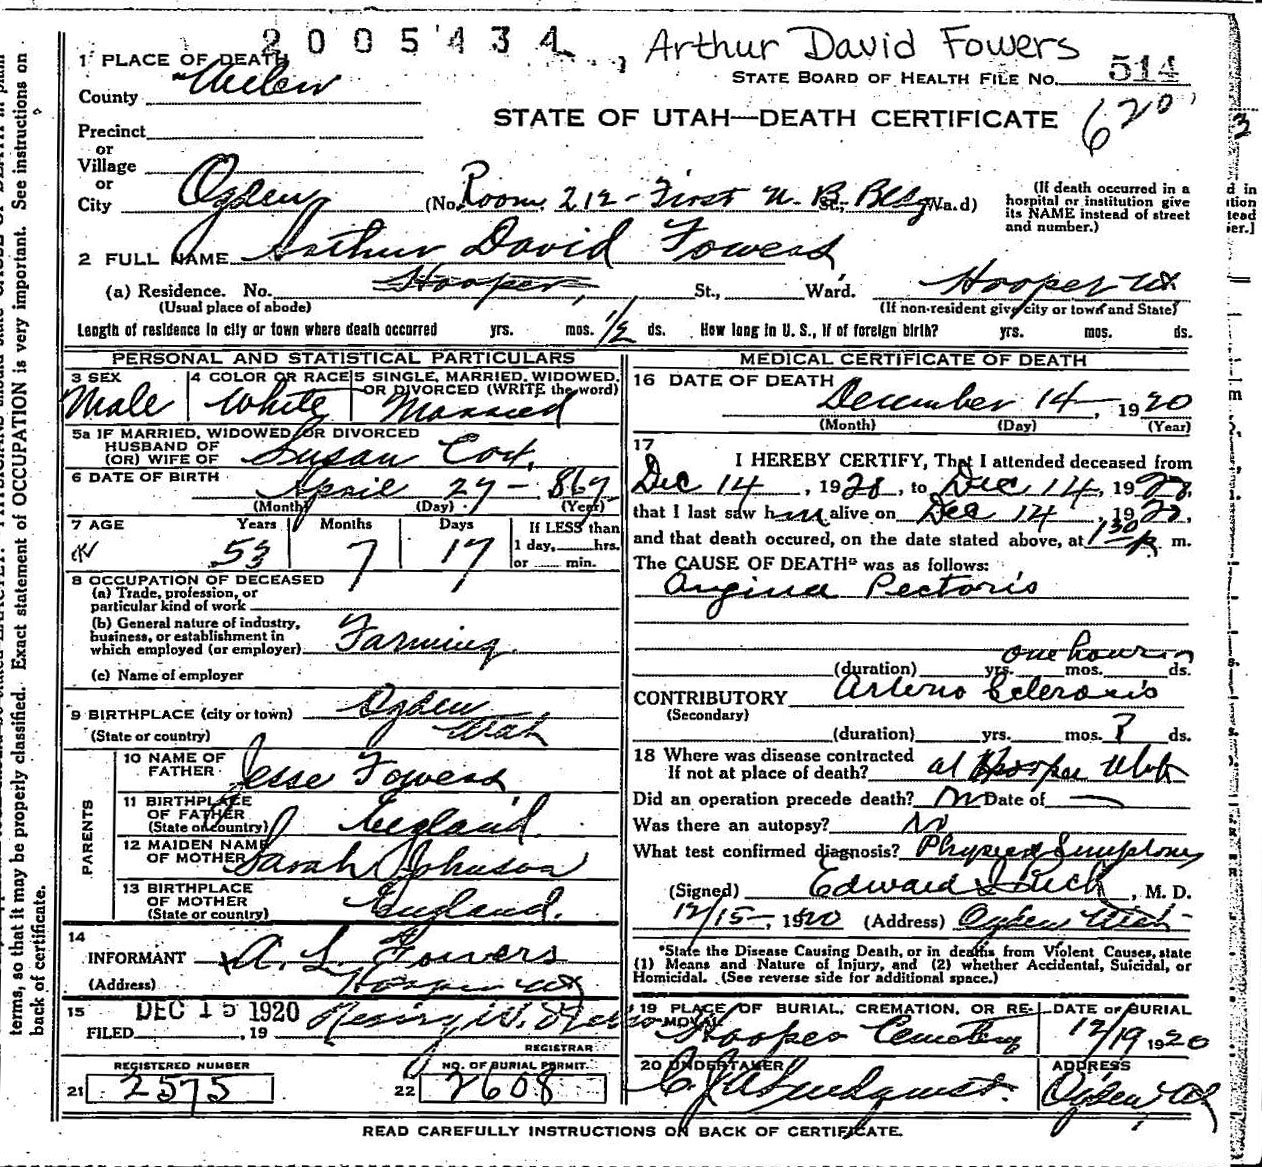 2005434
, Arthur David Fowers
1 PLACE OF DEATH
STATE BOARD OF HEALTH FILE NO. 514
County Weber
STATE OF UTAH—DEATH CERTIFICATE 620
Precinct
or
Village
or
City Ogden (No. Room 212 - First N. B. St., Bldg Ward)
(If death occurred in a hospital or institution give its NAME instead of street and number.)
2 FULL NAME Arthur David Fowers
(a) Residence. No. Hooper, St., Ward. Hooper Ut
(Usual place of abode) (If non-resident give city or town and State)
Length of residence in city or town where death occurred yrs. mos. 1/2 ds. How long in U. S., if of foreign birth? yrs. mos. ds.
PERSONAL AND STATISTICAL PARTICULARS
3 SEX Male
4 COLOR OR RACE White
5 SINGLE, MARRIED, WIDOWED, OR DIVORCED (WRITE the word) Married
5a IF MARRIED, WIDOWED, OR DIVORCED
HUSBAND OF
(OR) WIFE OF Susan Cox.
6 DATE OF BIRTH April 27 - 867
(Month) (Day) (Year)
7 AGE Years Months Days If LESS than
53 7 17 1 day, hrs.
or min.
8 OCCUPATION OF DECEASED
(a) Trade, profession, or
particular kind of work
(b) General nature of industry,
business, or establishment in
which employed (or employer) Farming
(c) Name of employer
9 BIRTHPLACE (city or town) Ogden
(State or country) Utah
PARENTS
10 NAME OF
FATHER Jesse Fowers
11 BIRTHPLACE
OF FATHER
(State or country) England.
12 MAIDEN NAME
OF MOTHER Sarah Johnson
13 BIRTHPLACE
OF MOTHER
(State or country) England.
14
INFORMANT A. L. Fowers
(Address) Hooper Ut
15 DEC 15 1920
FILED , 19
REGISTRAR
REGISTERED NUMBER
21 2575
NO. OF BURIAL PERMIT
22 2608
MEDICAL CERTIFICATE OF DEATH
16 DATE OF DEATH
December 14 , 1920
(Month) (Day) (Year)
17
I HEREBY CERTIFY, That I attended deceased from
Dec 14 , 1920, to Dec 14, 1920,
that I last saw him alive on Dec 14 1920,
and that death occured, on the date stated above, at 130 p m.
The CAUSE OF DEATH* was as follows:
Angina Pectoris
one hour
(duration) yrs. mos. ds.
CONTRIBUTORY Arterio Sclerosis
(Secondary)
(duration) yrs. mos. ? ds.
18 Where was disease contracted
If not at place of death? at Hooper Utah
Did an operation precede death? No Date of
Was there an autopsy? No
What test confirmed diagnosis? Physical Symptoms
(Signed) Edward I Rich, M. D.
12/15, 1920 (Address) Ogden Utah
*State the Disease Causing Death, or in deaths from Violent Causes, state
(1) Means and Nature of Injury, and (2) whether Accidental, Suicidal, or
Homicidal. (See reverse side for additional space.)
19 PLACE OF BURIAL, CREMATION, OR RE-
MOVAL
Hooper Cemetery
DATE OF BURIAL
12/19 1920
20 UNDERTAKER
ADDRESS
Ogden, Ut
READ CAREFULLY INSTRUCTIONS ON BACK OF CERTIFICATE.
terms, so that it may be properly classified. Exact statement of OCCUPATION is very important. See instructions on
back of certificate.